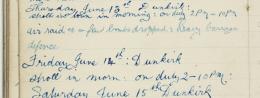 Thursday June 13th Dunkirk:
stroll in town in morning: on duty 2pm - 10pm
air raid & a few bombs dropped: heavy barrage
defence
Friday June 14th: Dunkirk
stroll in morn: on duty 2-10pm:
Saturday June 15th Dunkirk